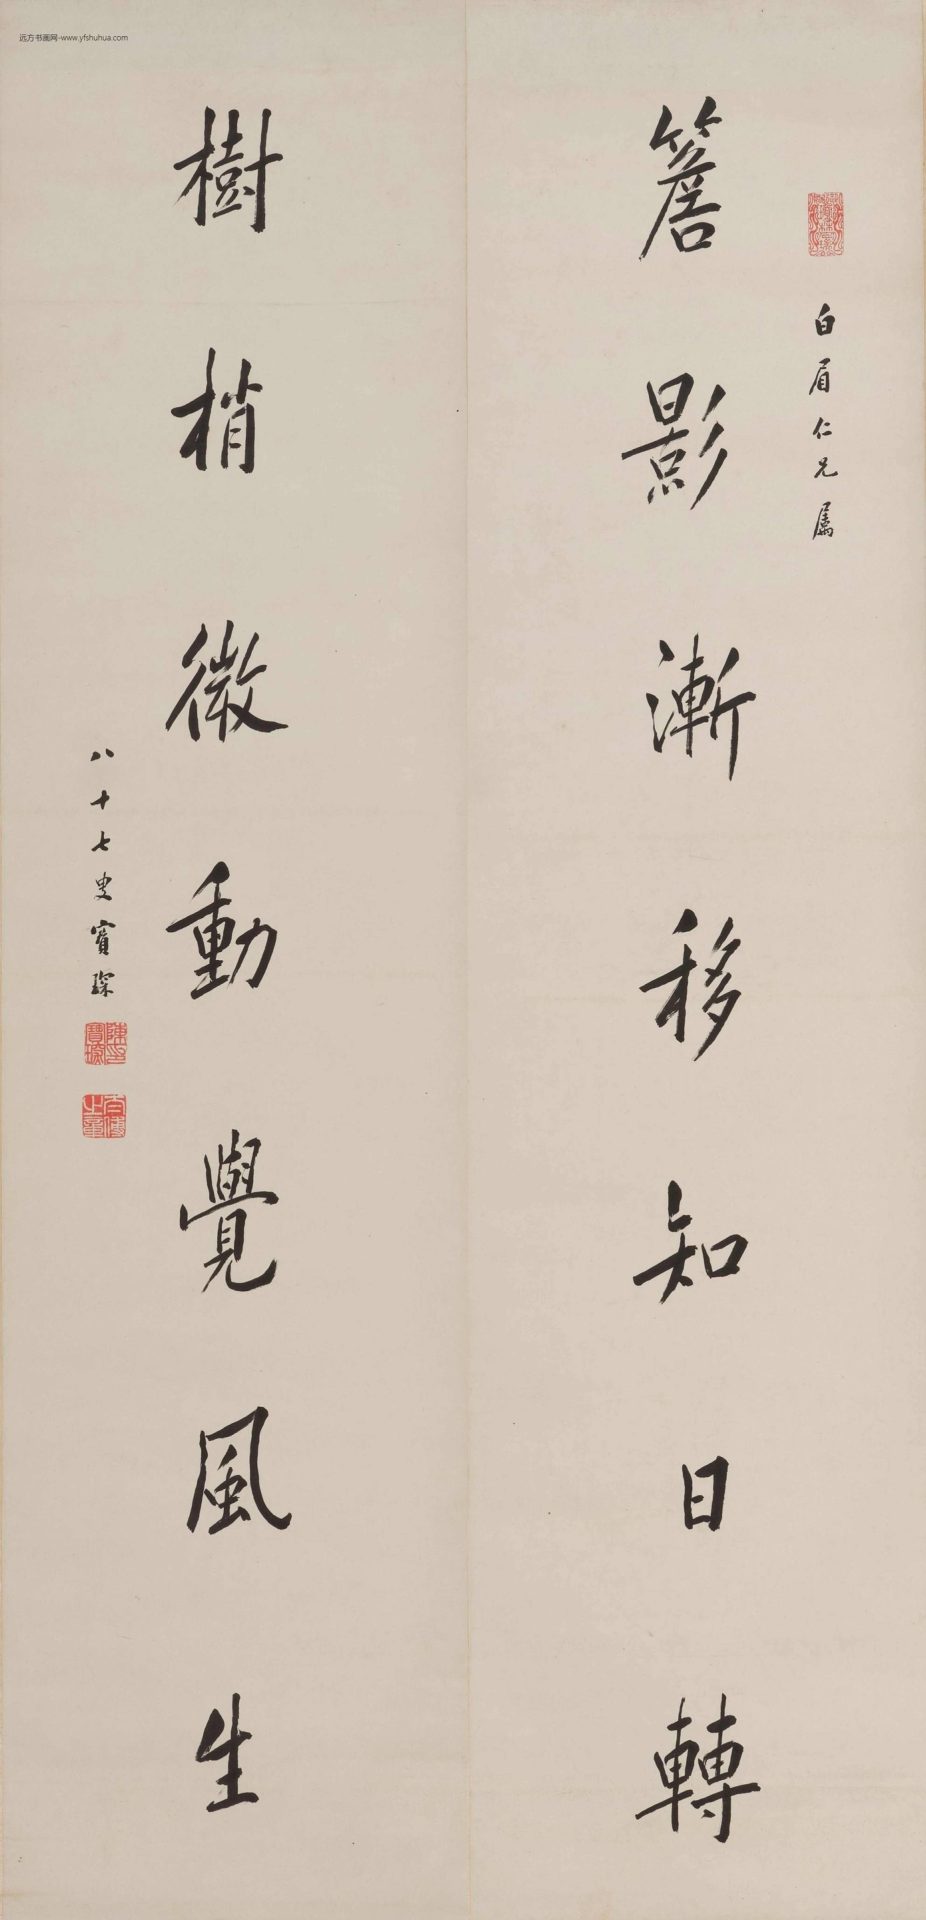 远方书画网-www.yfshuhua.com
白眉仁兄屬
簷影漸移知日轉
樹梢微動覺風生
八十七叟寶琛
陳印寶琛
太傅之章